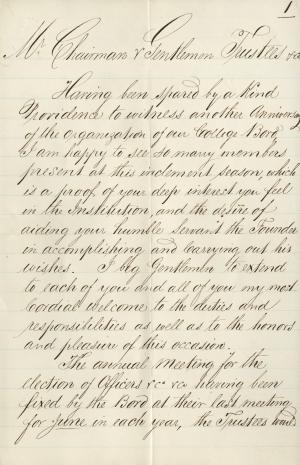 1
Mr. Chairman & Gentlemen Trustees &c
Having been spared by a Kind
Providence to witness another Anniversary
of the Organization of our College Bord,
I am happy to see so many members
present at this inclement season, which
is a proof of your deep interest you feel
in the Institution, and the desire of
aiding your humble servant the Founder
in accomplishing and carrying out his
wishes. I beg Gentlemen to extend
to each of you and all of you my most
Cordial welcome to the duties and
responsibilities as well as to the honors
and pleasure of this occasion.
The annual Meeting for the
election of Officers &c &c having been
fixed by the Bord at their last meeting
for June in each year, the Trustees